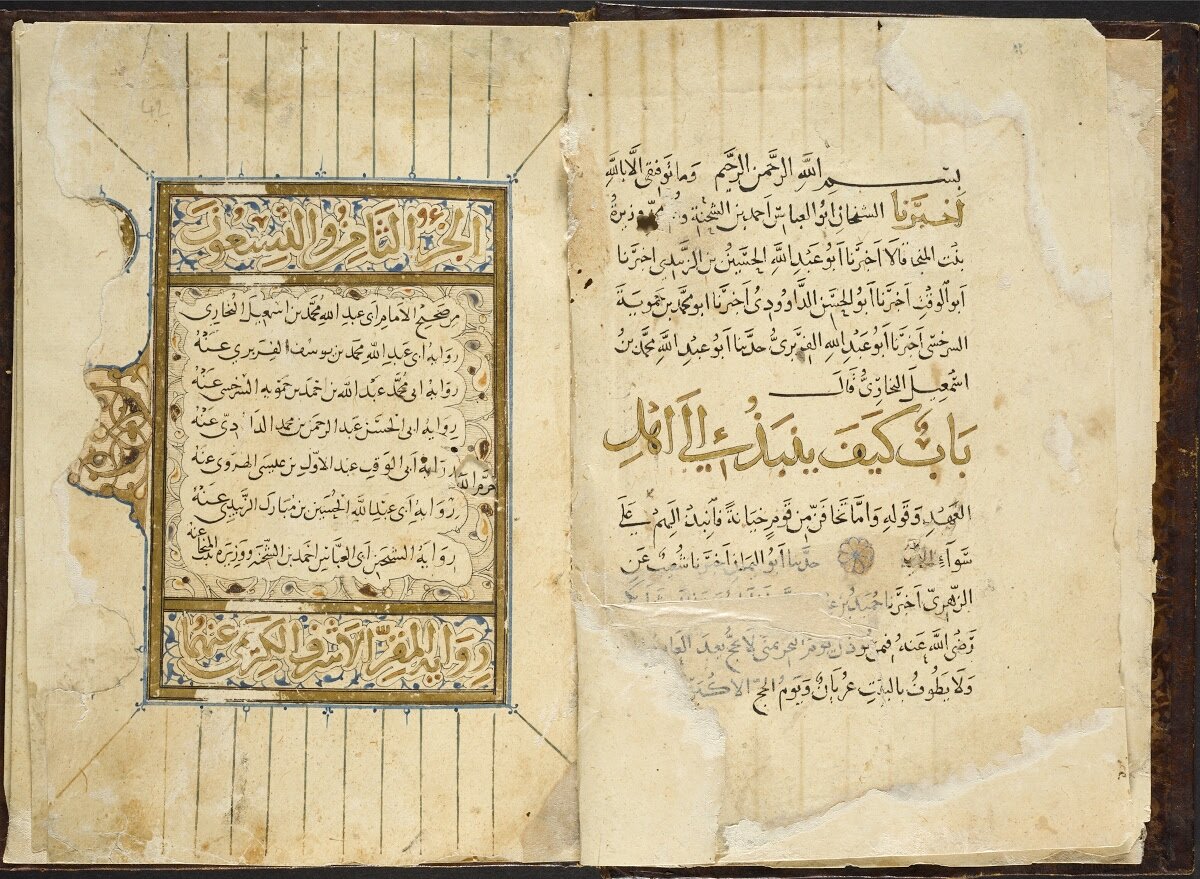 بسم الله الرحمن الرحيم وما توفيقي الا بالله
اخبرنا الشيخان ابو العباس احمد بن الشحنة وزيرة
بنت المنجى قالا اخبرنا ابو عبد الله الحسين بن الزبيدي اخبرنا
ابو الوقت اخبرنا ابو الحسن الداوودي اخبرنا ابو محمد بن حموية
السرخسي اخبرنا ابو عبد الله الفربري حدثنا ابو عبد الله محمد بن
اسمعيل البخاري قال
باب كيف ينبذ الى اهل
العهد وقوله واما تخافن من قوم خيانة فانبذ اليهم على
سواء حدثنا ابو اليمان اخبرنا شعيب عن
الزهري اخبرنا حميد بن
رضي الله عنه فيمن يوذن يوم النحر بمنى لا يحج بعد العام
ولا يطوف بالبيت عريان ويوم الحج الاكبر
الجزء الثامن والتسعون
من صحيح الامام ابي عبد الله محمد بن اسمعيل البخاري
رواية ابي عبد الله محمد بن يوسف الفربري عنه
رواية ابي محمد عبد الله بن احمد بن حمويه السرخسي عنه
رواية ابي الحسن عبد الرحمن بن محمد الداودي عنه
رواية ابي الوقت عبد الاول بن عيسى الهروي عنه
رواية ابي عبد الله الحسين بن مبارك الزبيدي عنه
رواية الشيخين ابي العباس احمد بن الشحنة ووزيرة بنت المنجا عنه
رواية المقر الاشرف الكريم عنهما